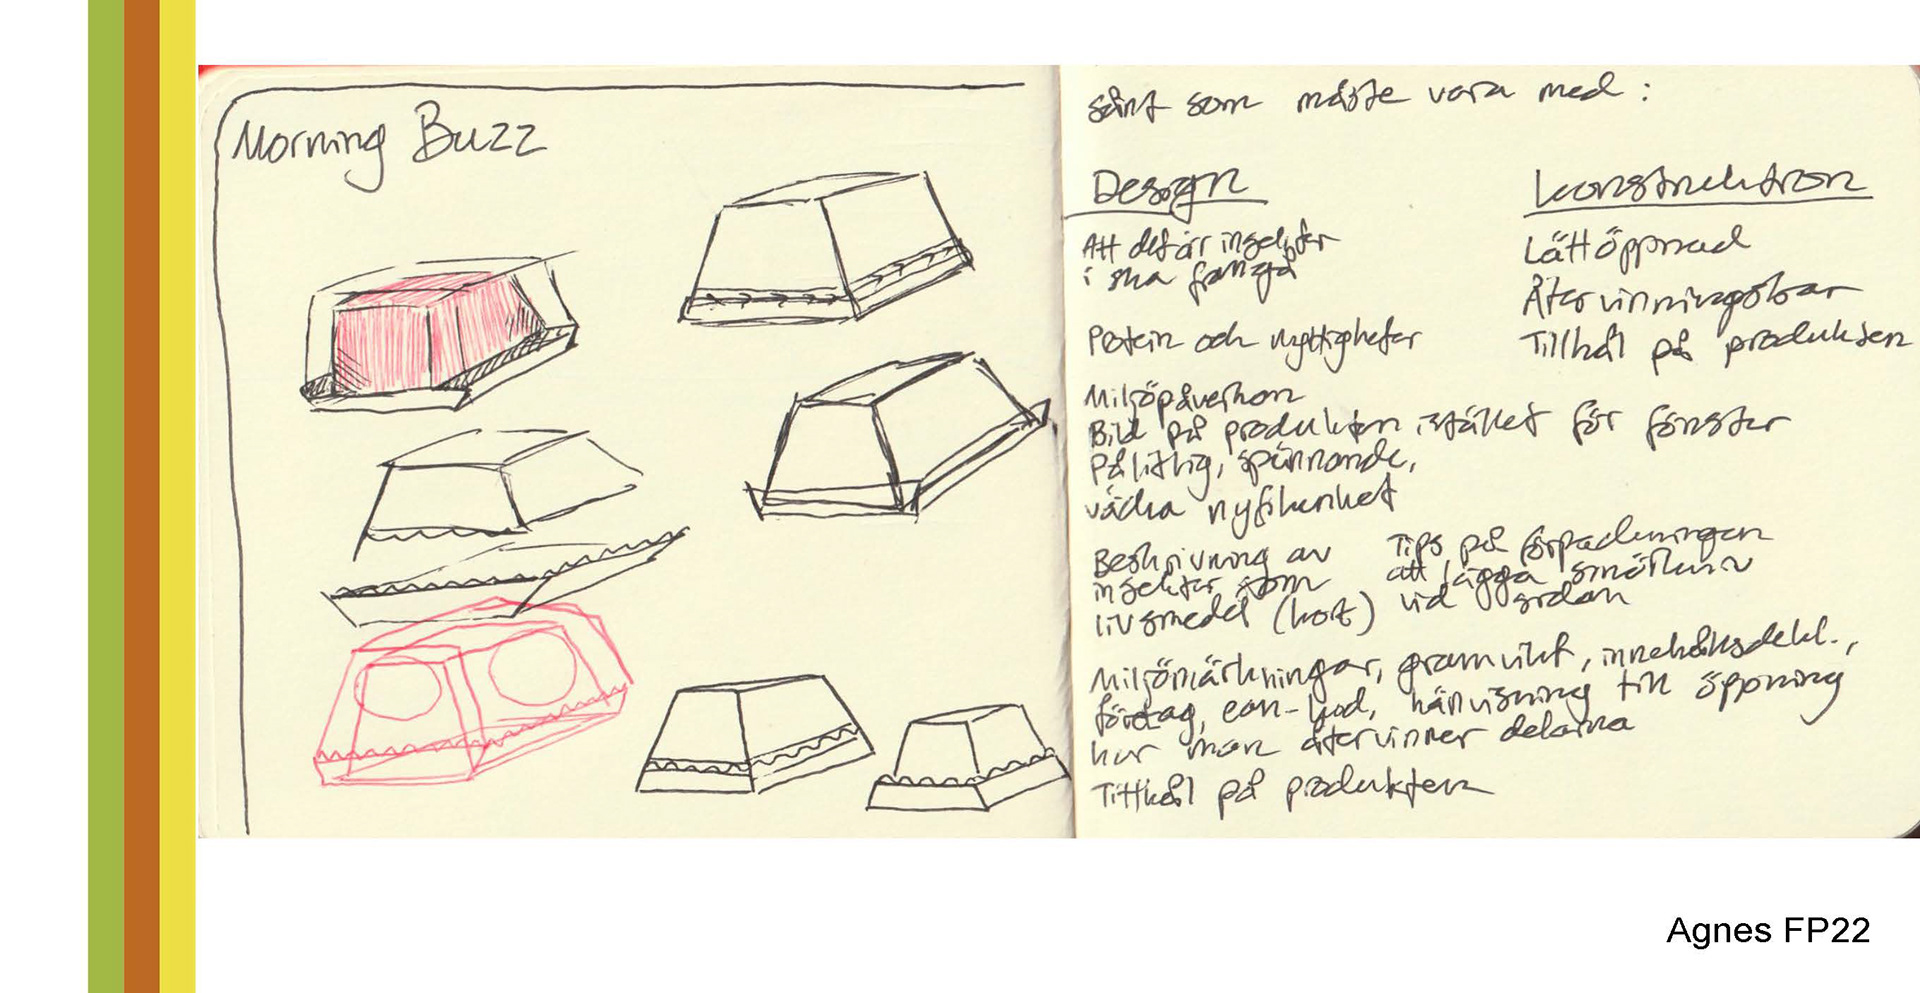 Morning Buzz
sånt som måste vara med:
Design
Att det är insekter
i ska framgå
Protein och nyttigheter
Miljöpåverkan
Bild på produkten istället för fönster
Pålitlig, spännande,
väcka nyfikenhet
Beskrivning av
insekter som
livsmedel (kort)
Tips på förpackningen
att lägga småkryp
vid sidan
Miljömärkningar, gramvikt, innehållsdekl.,
företag, ean-kod, hänvisning till öppning
hur man återvinner delarna
Titthål på produkten
Konstruktion
Lättöppnad
Återvinningsbar
Titthål på produkten
Agnes FP22